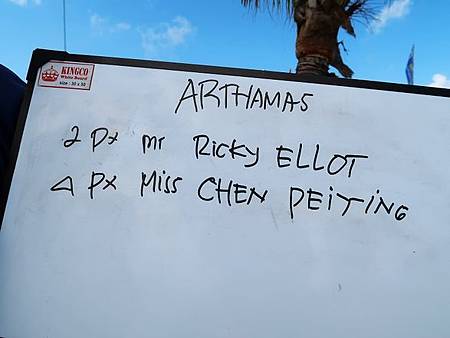 KINGCO
White Board
size : 30 x 50
ARTHAMAS
2 Px Mr Ricky ELLOT
4 Px Miss CHEN PEITING